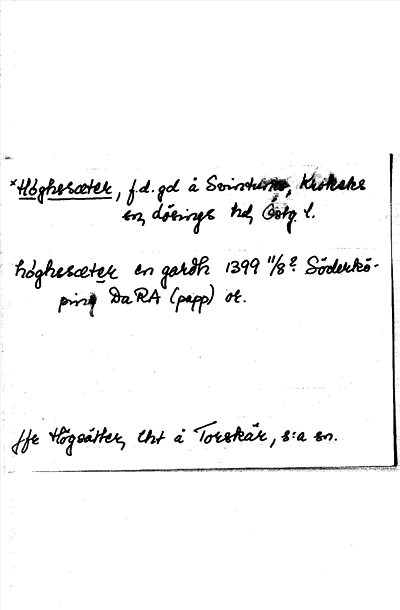 *Höghesæter, f.d. gd å Svinturna, Krokeks
sn, Lösings hd, Östg. l.
höghesæter en gardh 1399 11/8? Söderkö-
ping DaRA (papp) or.
Jfr Högsätter, lht å Torskär, s:a sn.